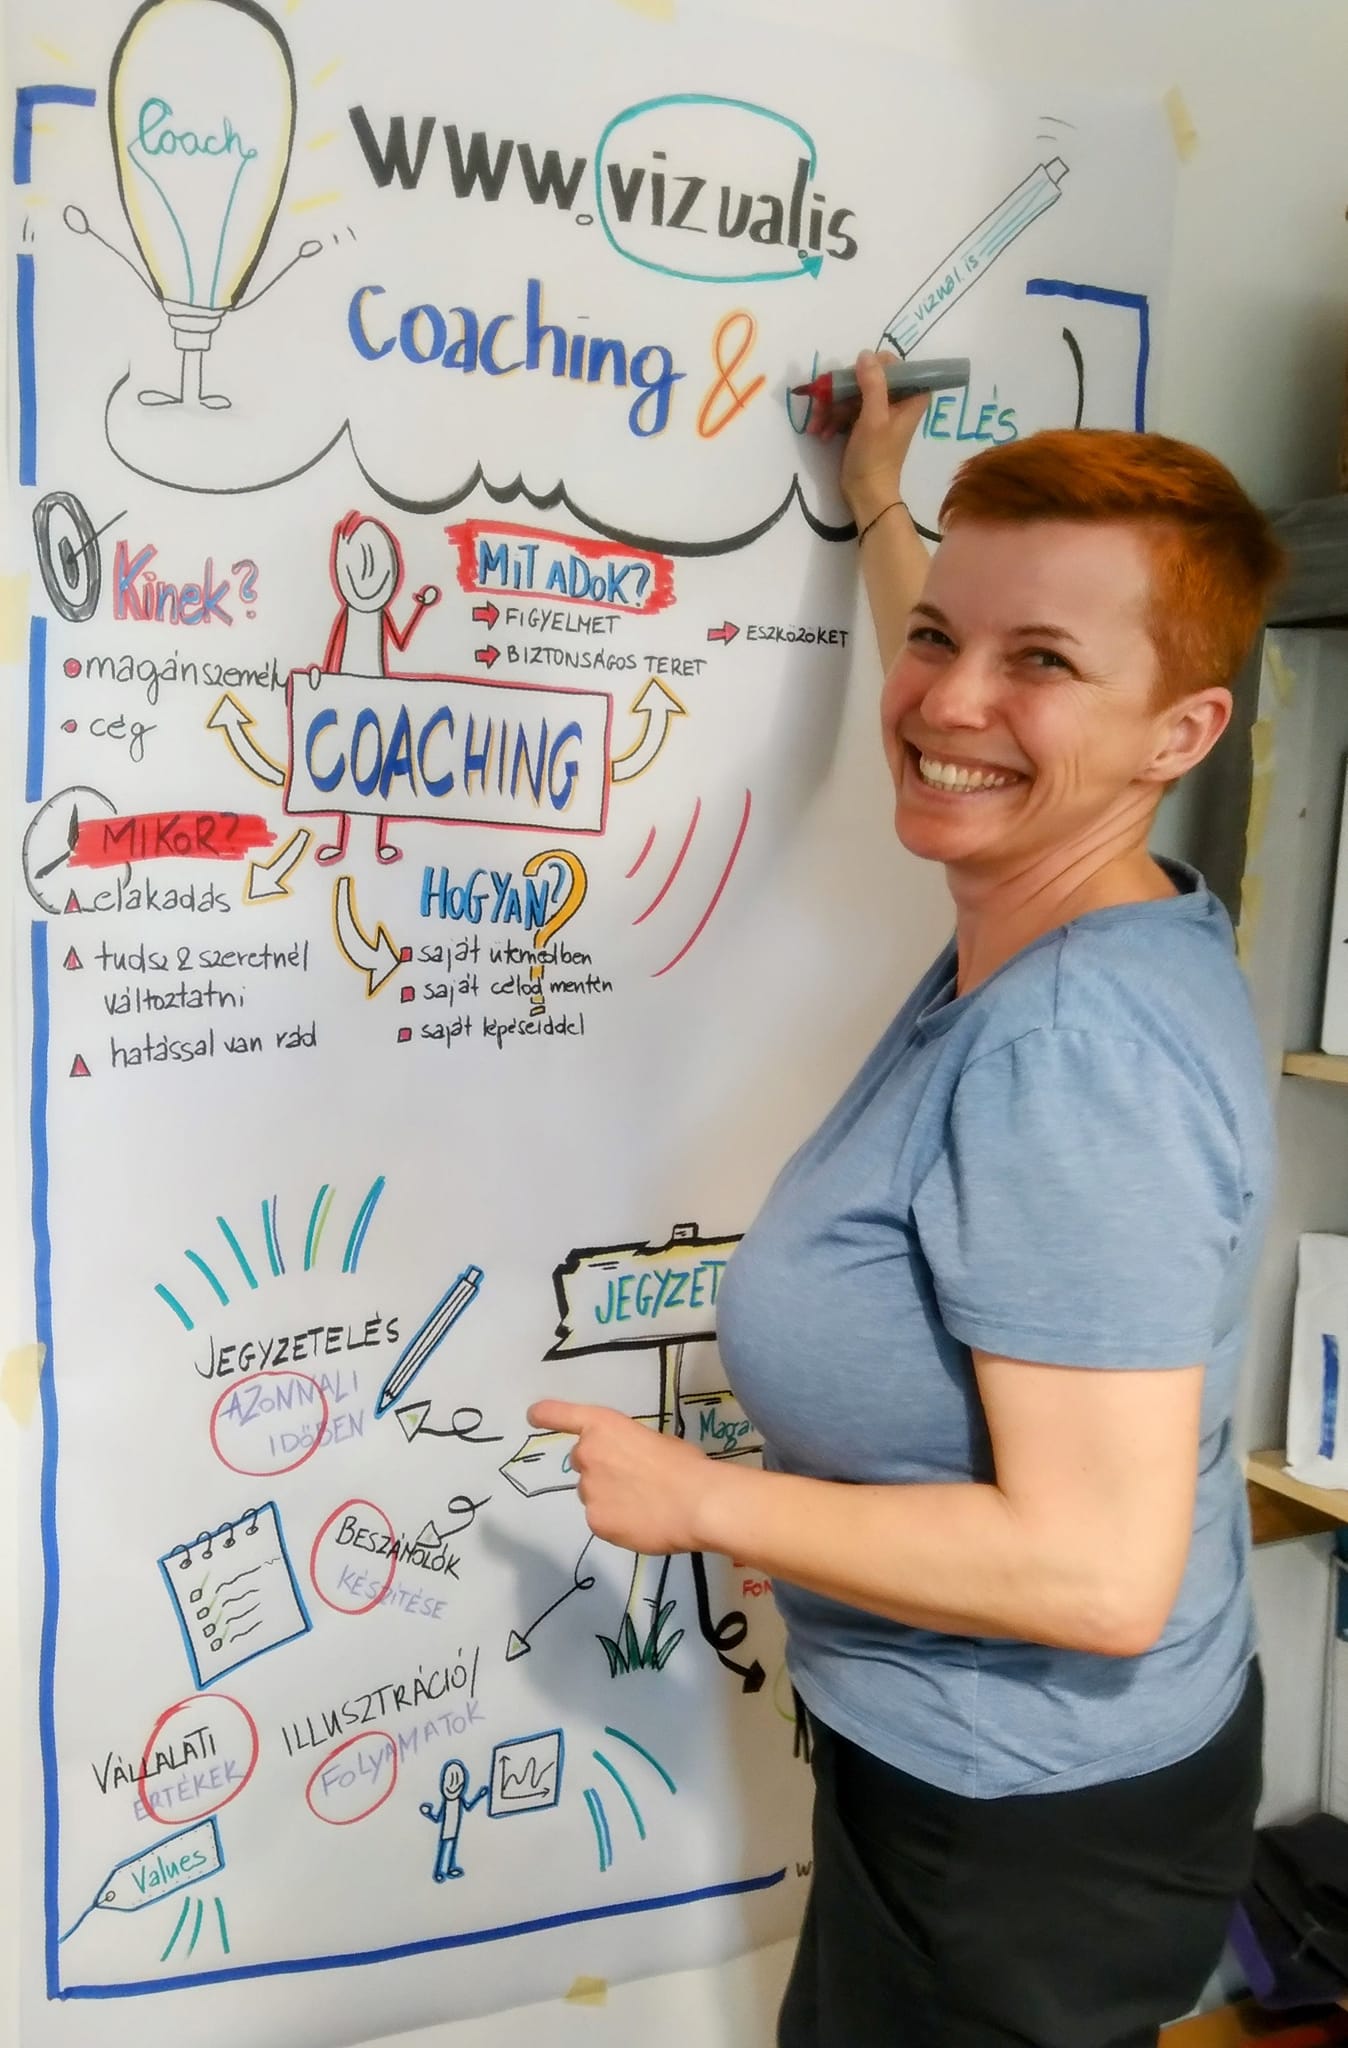 Coach
www.vizual.is
vizual.is
Coaching &
ELÉS
Kinek?
magánszemély
cég
MIT ADOK?
FIGYELMET
BIZTONSÁGOS TERET
ESZKÖZÖKET
COACHING
MIKOR?
elakadás
tudsz & szeretnél
változtatni
hatással van rád
HOGYAN?
saját ütemedben
saját célod mentén
saját lépéseiddel
JEGYZETELÉS
AZONNALI
IDŐBEN
JEGYZET
Magá
BESZÁMOLÓK
KÉSZÍTÉSE
FON
ILLUSZTRÁCIÓ/
FOLYAMATOK
VÁLLALATI
ÉRTÉKEK
Values